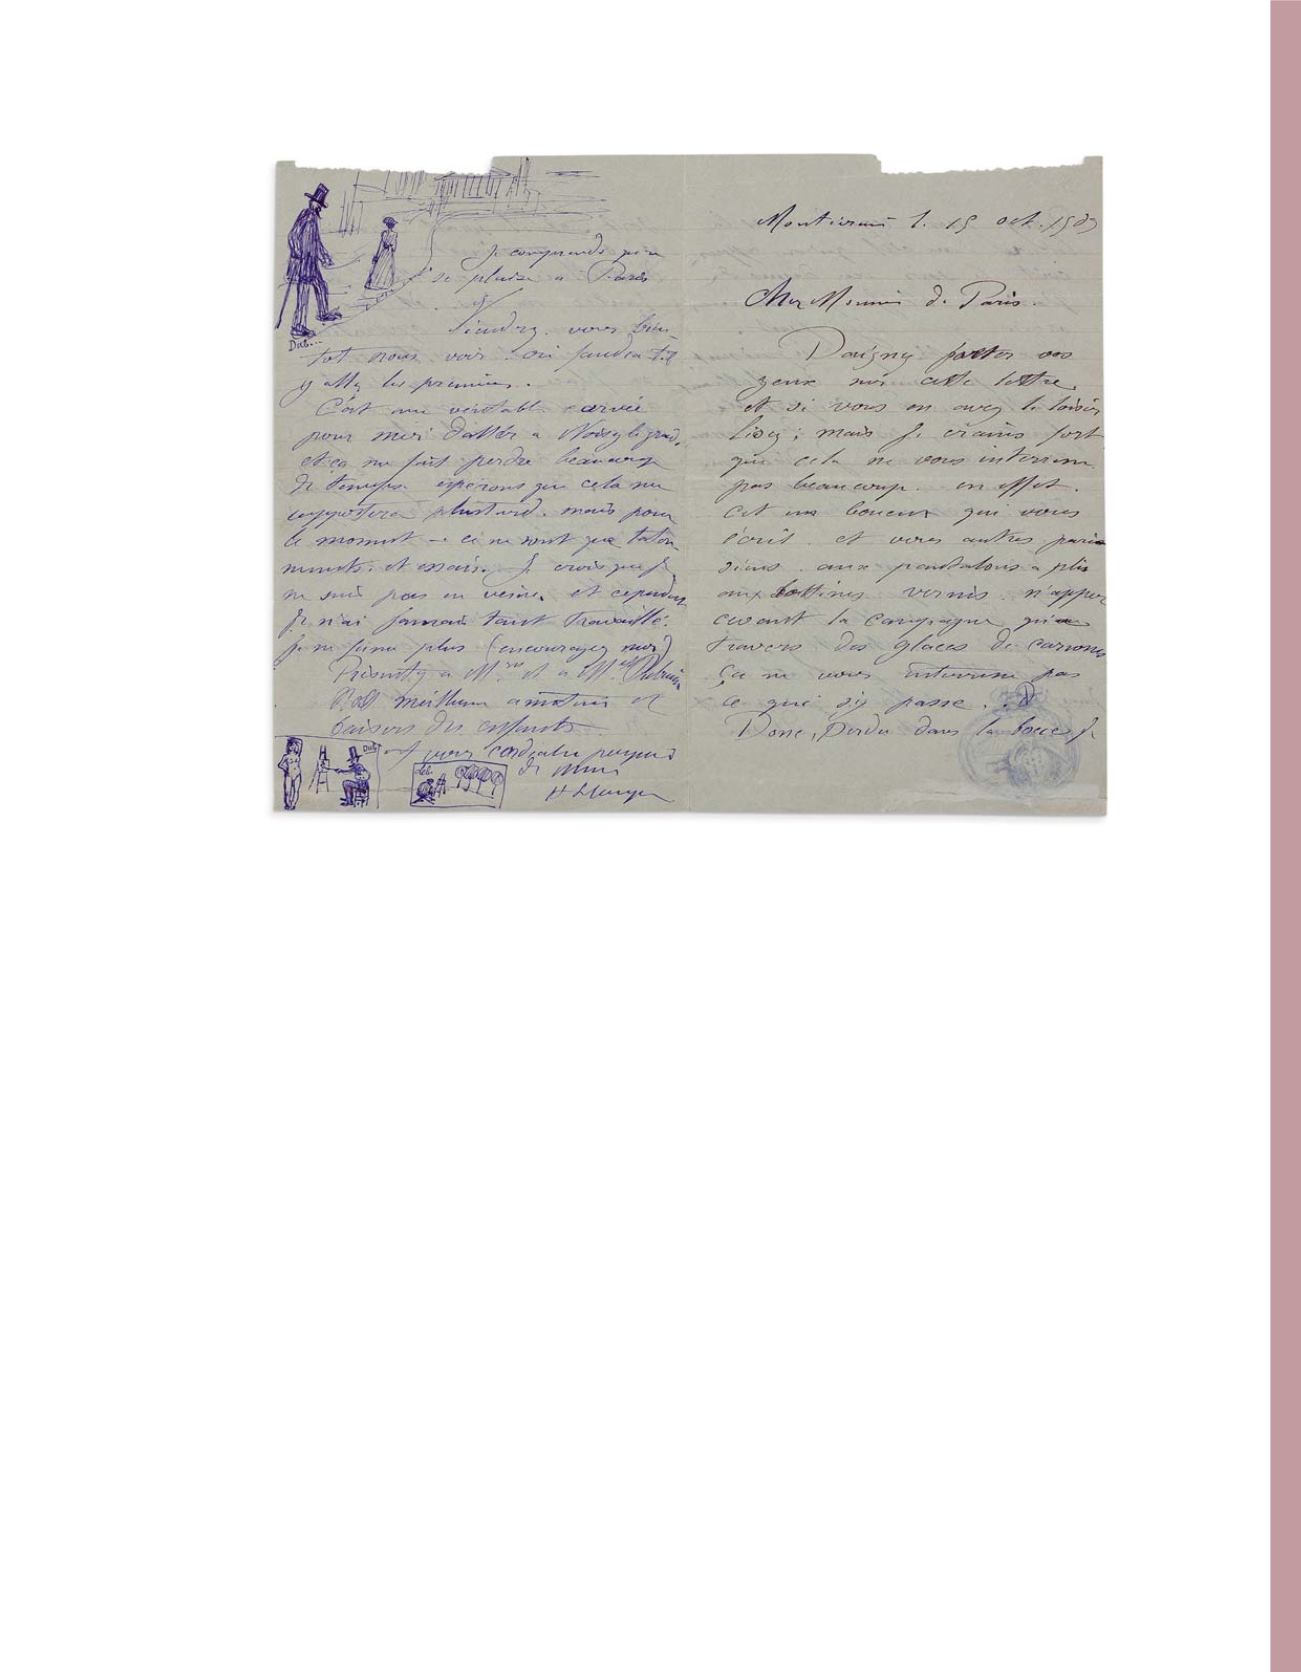 Montierami l. 15 oct. 190
Cher Monsieur de Paris.
Daignez porter vos
yeux sur cette lettre
et si vous en avez le loisir
lisez; mais je crains fort
que cela ne vous interesse
pas beaucoup. en effet.
cet un boueux qui vous
écrit. et vous autres pari
siens. aux pantalons a plis
aux bottines vernis. n'apper
cevant la campagne qu'au
travers des glaces de
ça ne vous interesse pas
ce qui s'y passe.
Donc, Perdu dans la boue je
Je comprends qu'on
se plaise a Paris
Viendrez. vous bien
tot nous voir. ou faudra t-il
y aller les premiers.
C'est une véritable corvée
pour moi d'aller a Noisy le grand.
et ça me fait perdre beaucoup
de temps. espérons que cela me
rapportera plustard. mais pour
le moment - ce ne sont que taton
nements. et essais. Je crois que je
ne suis pas en veine. et cependant
Je n'ai jamais tant travaillé.
Je ne fume plus (encouragez moi)
Présentez a Mme et a Melle
meilleures amities et
baisers des enfants
cordiales
de
Deb...
Deb
deb.